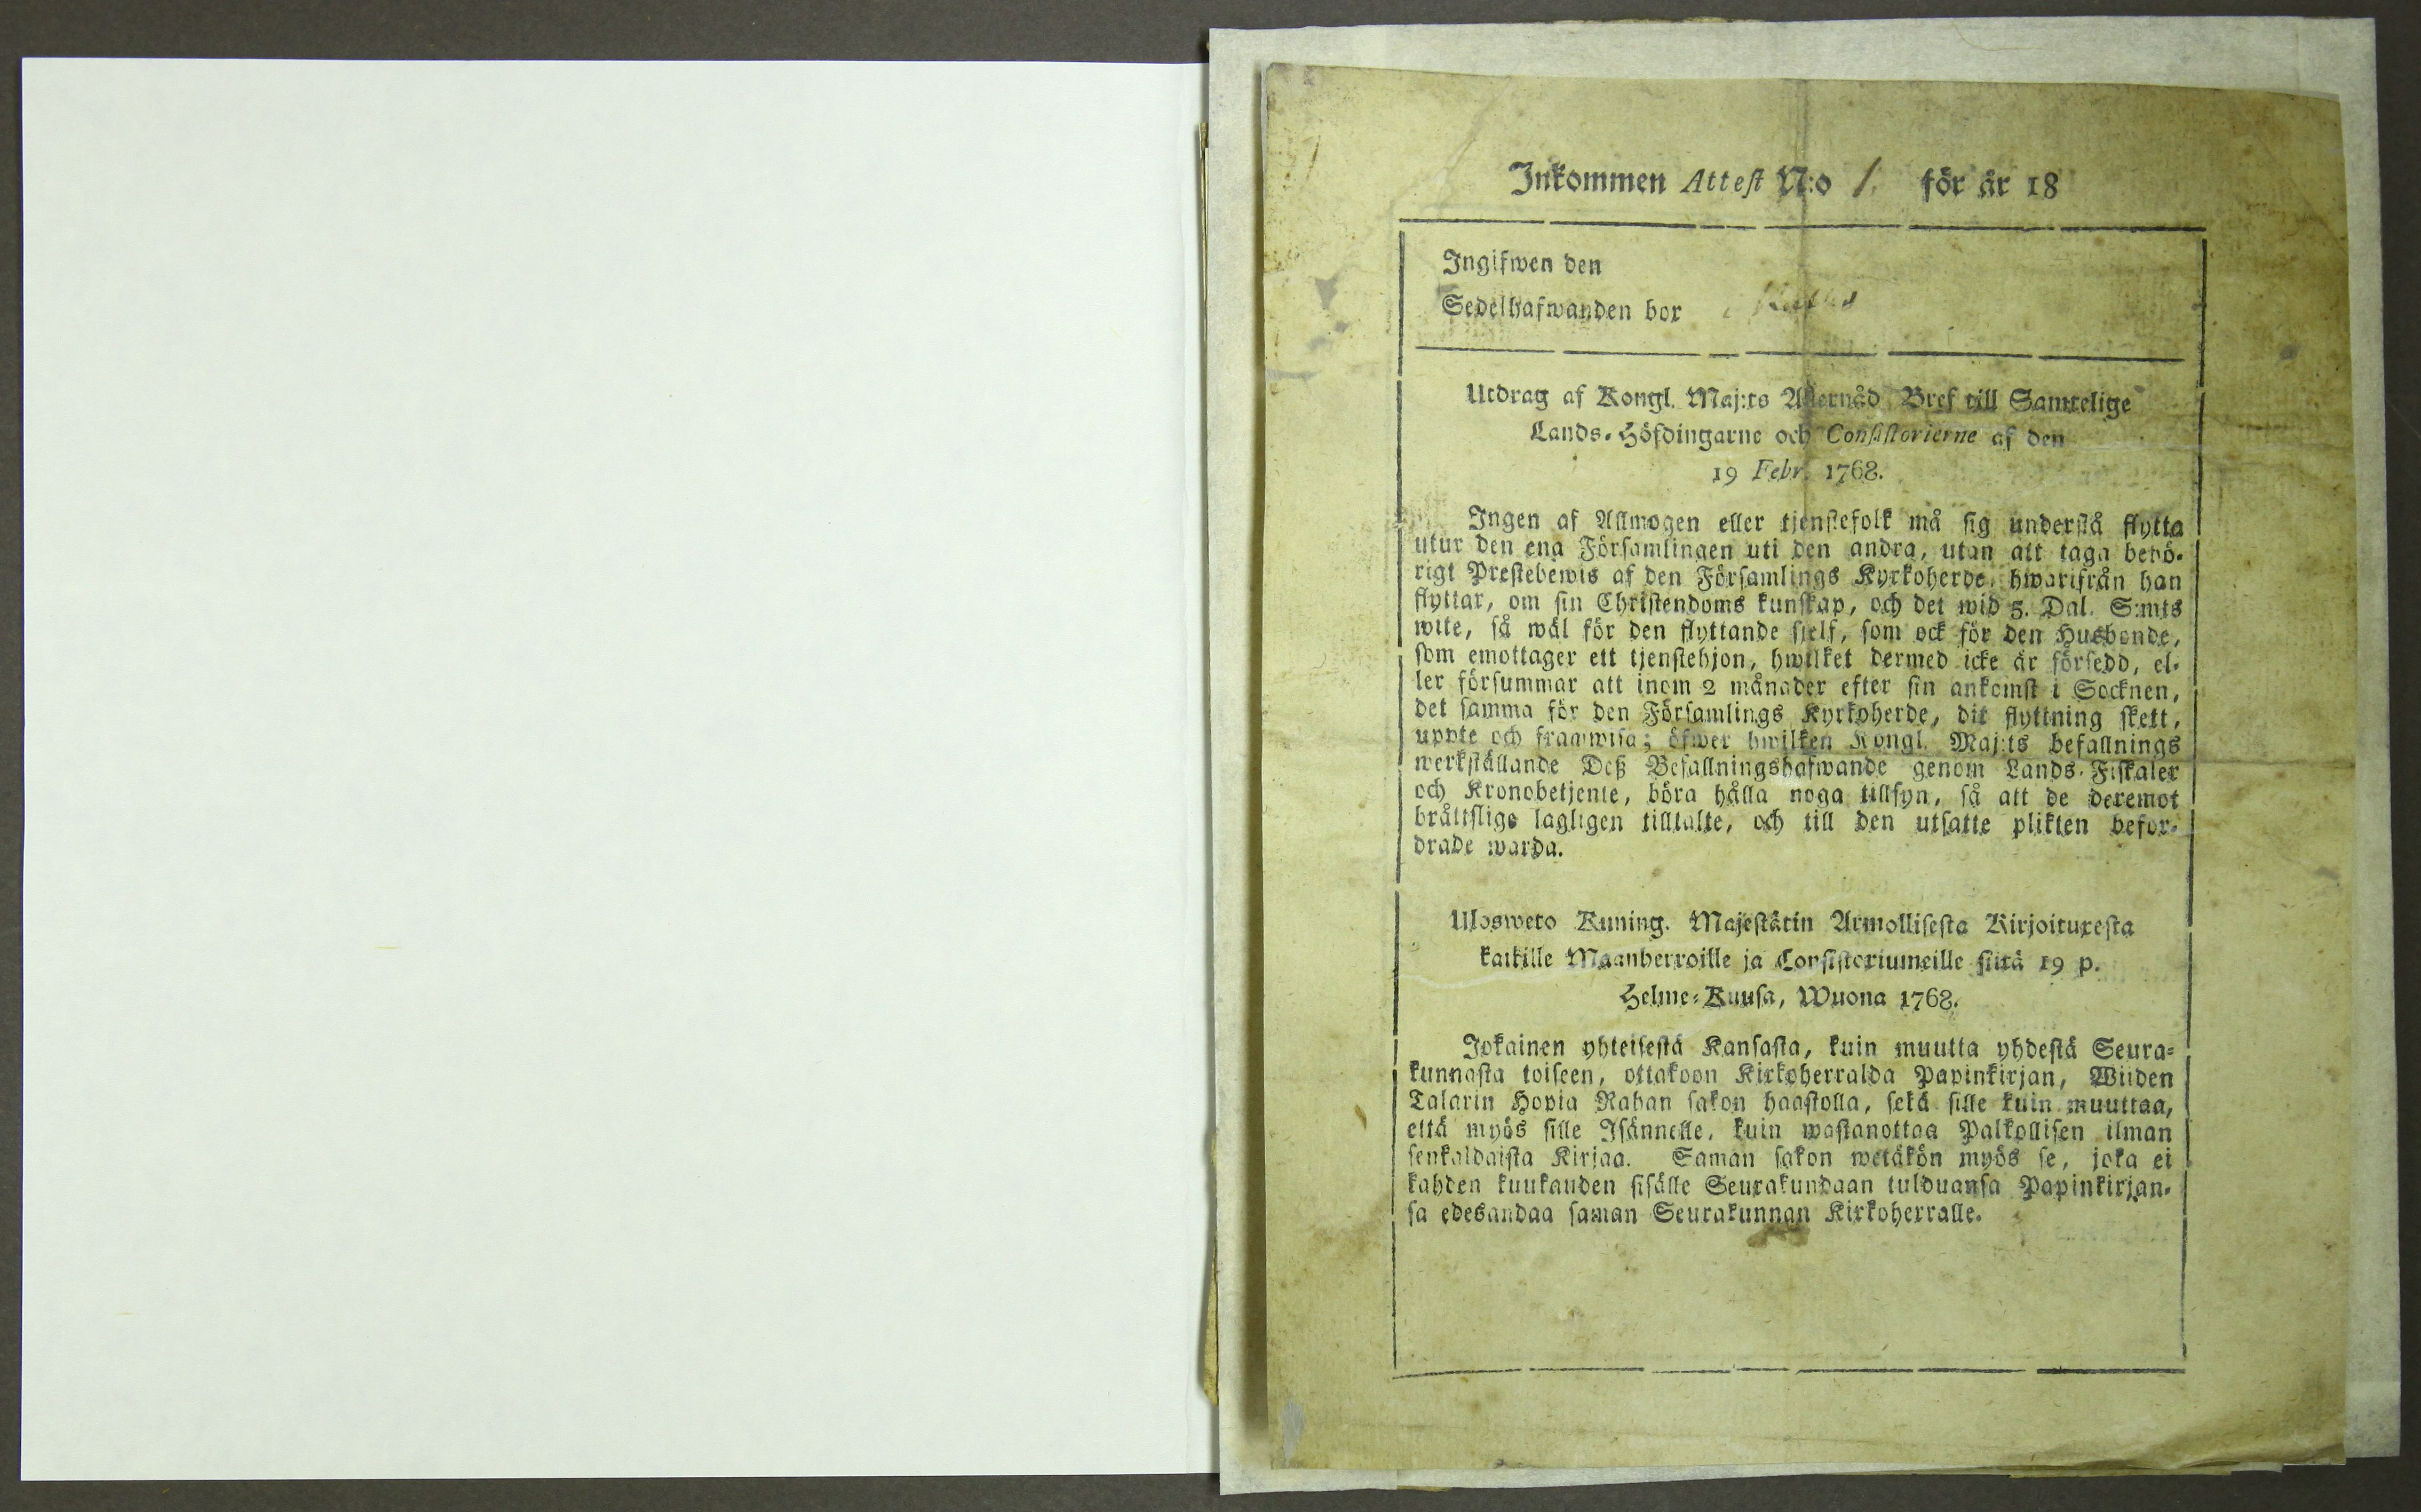 Inkommen Attest N:o 1. för år 18
Ingifwen den
Sedelhafwanden bor
Utdrag af Kongl. Maj:ts Allernåd Bref till Samtelige
Lands-Höfdingarne och Consistorierne af den
19 Febr. 1768.
Ingen af Allmogen eller tjenstefolk må sig understå flytta
utur den ena Församlingen uti den andra, utan att taga behö-
rigt Prestebewis af den Församlings Kyrkoherde, hwarifrån han
flyttar, om sin Christendoms kunskap, och det wid 5. Dal. S:mts
wite, så wäl för den flyttande sjelf, som ock för den Husbonde,
som emottager ett tjenstehjon, hwilket dermed icke är försedd, el-
ler försummar att inom 2 månader efter sin ankomst i Socknen,
det samma för den Församlings Kyrkoherde, dit flyttning skett,
uppte och framwisa; öfwer hwilken Kongl. Maj:ts befallnings
werkställande Deß Befallningshafwande genom Lands-Fiskaler
och Kronobetjente, böra hålla noga tillsyn, så att de deremot
bråttslige lagligen tilltalte, och till den utsatte plikten befor-
drade warda.
Ulosweto Kuning. Majestätin Armollisesta Kirjoituxesta
kaikille Maanherroille ja Consistoriumeille siitä 19 p.
Helme-Kuusa, Wuona 1768.
Jokainen yhteisestä Kansasta, kuin muutta yhdestä Seura-
kunnasta toiseen, ottakoon Kirkoherralda Papinkirjan, Wiiden
Talarin Hopia Rahan sakon haastolla, sekä sille kuin muuttaa,
että myös sille Isännelle, kuin wastanottaa Palkollisen ilman
senkaldaista Kirjaa. Saman sakon wetäkön myös se, joka ei
kahden kuukauden sisälle Seurakundaan tulduansa Papinkirjan-
sa edesandaa saman Seurakunnan Kirkoherralle.